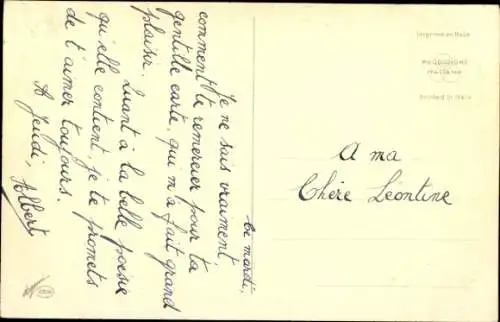 Ce mardi,
Je ne sais vraiment
comment te remercier pour ta
gentille carte, qui m'a fait grand
plaisir.
Quant à la belle poésie
qu'elle contient, je te promets
de t'aimer toujours.
A jeudi, Albert
A ma
Chère Léontine
Imprimé en Italie
Printed in Italy